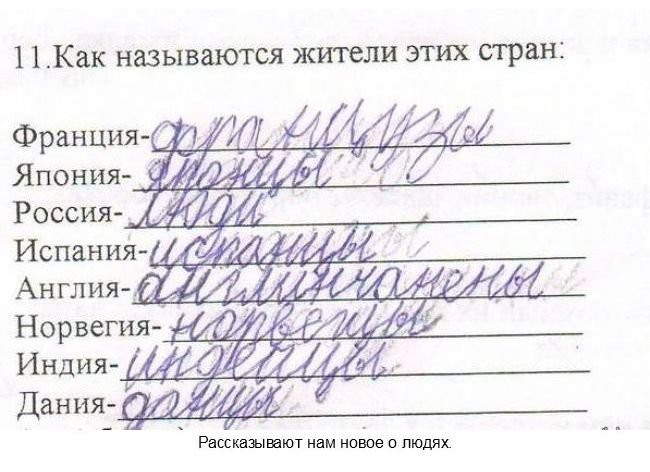 11.Как называются жители этих стран:
Франция-французы
Япония-японцы
Россия-люди
Испания-испанцы
Англия-англинчанены
Норвегия-норвегцы
Индия-индейцы
Дания-данцы
Рассказывают нам новое о людях.